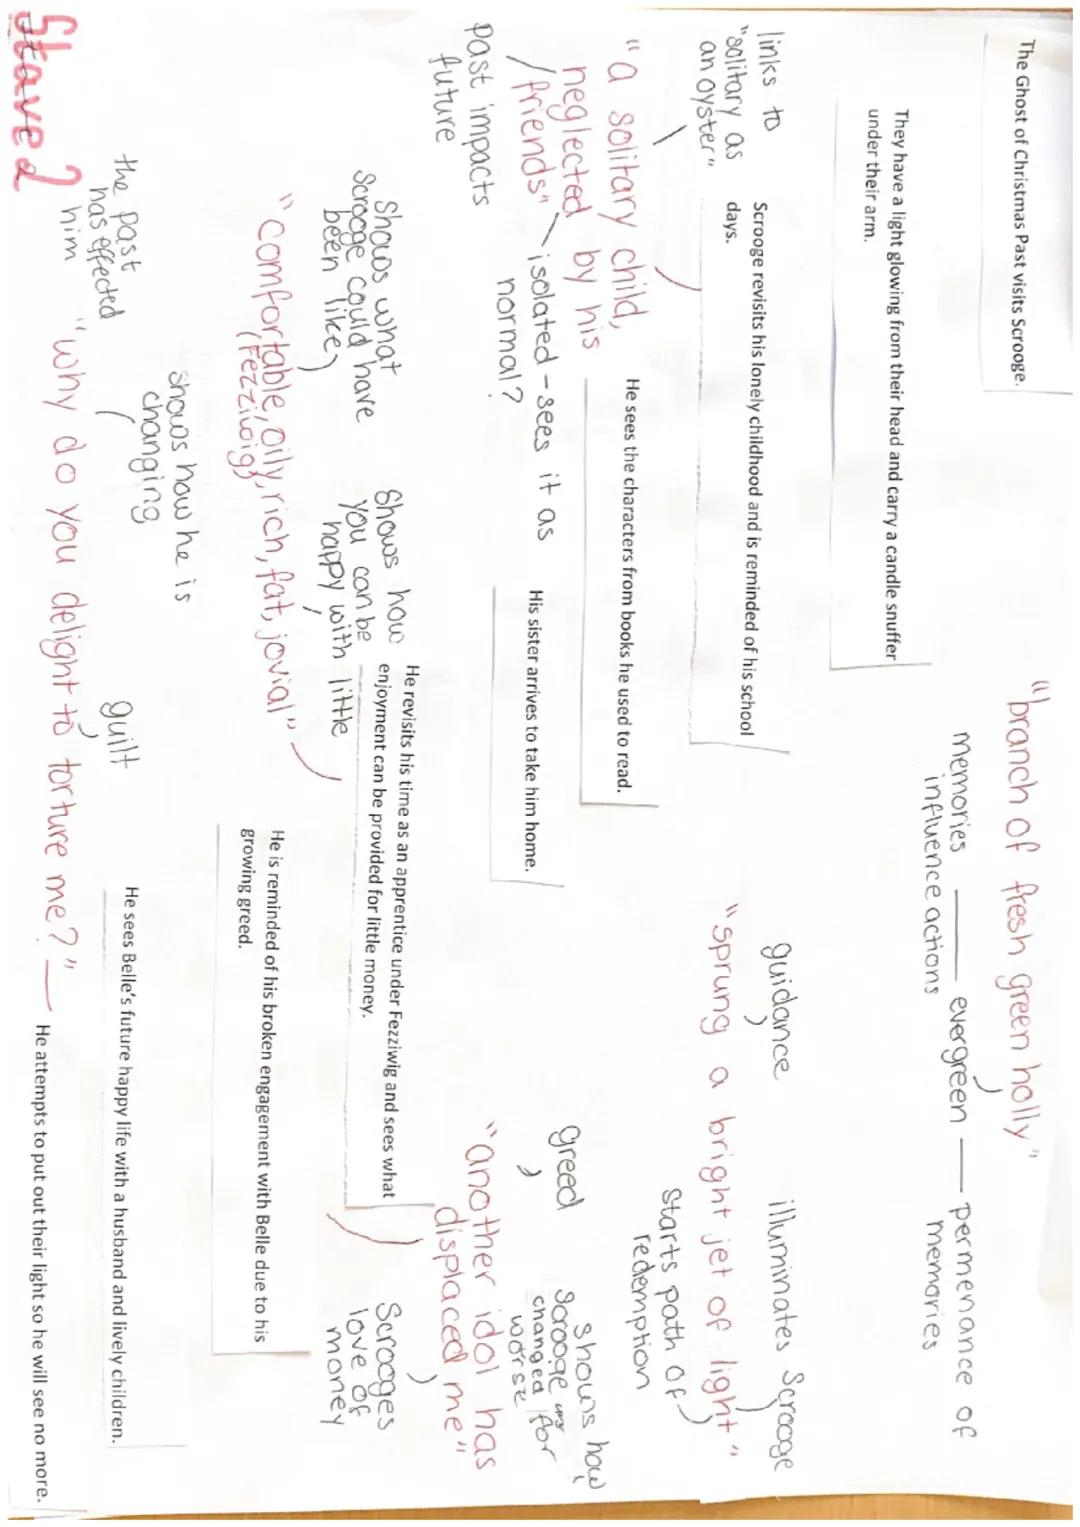 Stave 2
The Ghost of Christmas Past visits Scrooge.
"branch of fresh green holly"
memories — evergreen — permenance of
influence actions
memories
They have a light glowing from their head and carry a candle snuffer
under their arm.
links to
"solitary as
an oyster"
guidance
illuminates Scrooge
Scrooge revisits his lonely childhood and is reminded of his school
days.
"sprung a bright jet of light"
starts path of
redemption
"a solitary child,
neglected by his
friends"
He sees the characters from books he used to read.
isolated - sees it as
normal?
past impacts
future
His sister arrives to take him home.
greed
shows how
Scrooge
changed for
worse
"another idol has
displaced me"
Shows what
Scrooge could have
been like
Shows how
you can be
happy with little
He revisits his time as an apprentice under Fezziwig and sees what
enjoyment can be provided for little money.
Scrooges
love of
money
"comfortable, oily, rich, fat, jovial"
(Fezziwig)
He is reminded of his broken engagement with Belle due to his
growing greed.
shows how he is
changing
the past
has effected
him
guilt
He sees Belle's future happy life with a husband and lively children.
"why do you delight to torture me?" —
He attempts to put out their light so he will see no more.